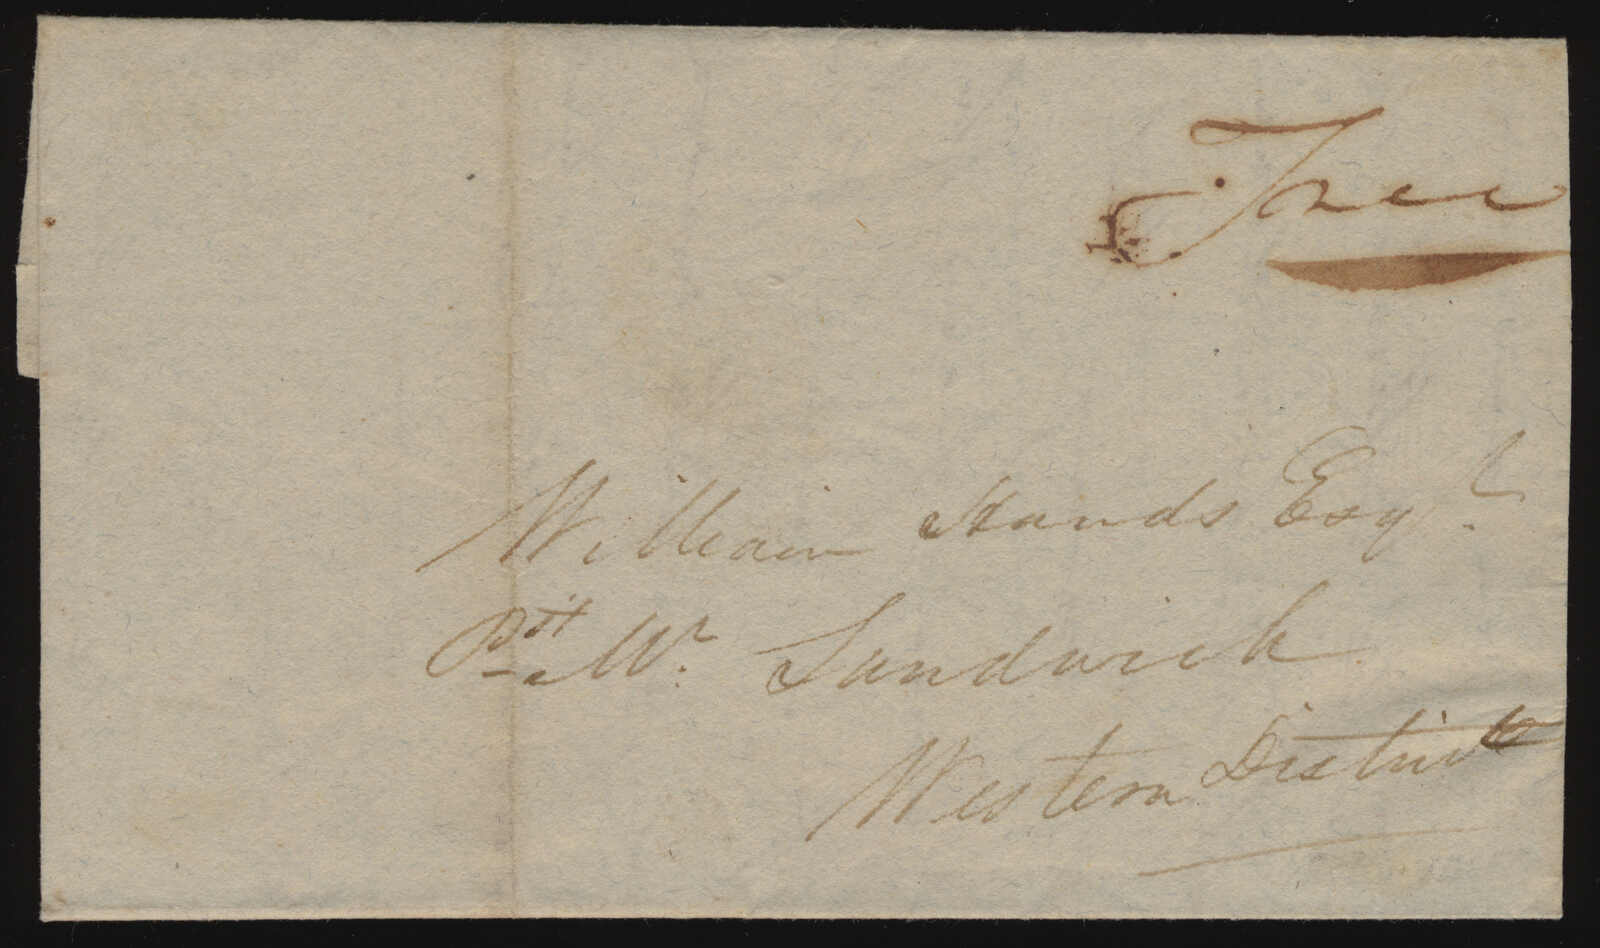 Free
William Hands Esqr.
Pst Mr. Sandwich
Western District